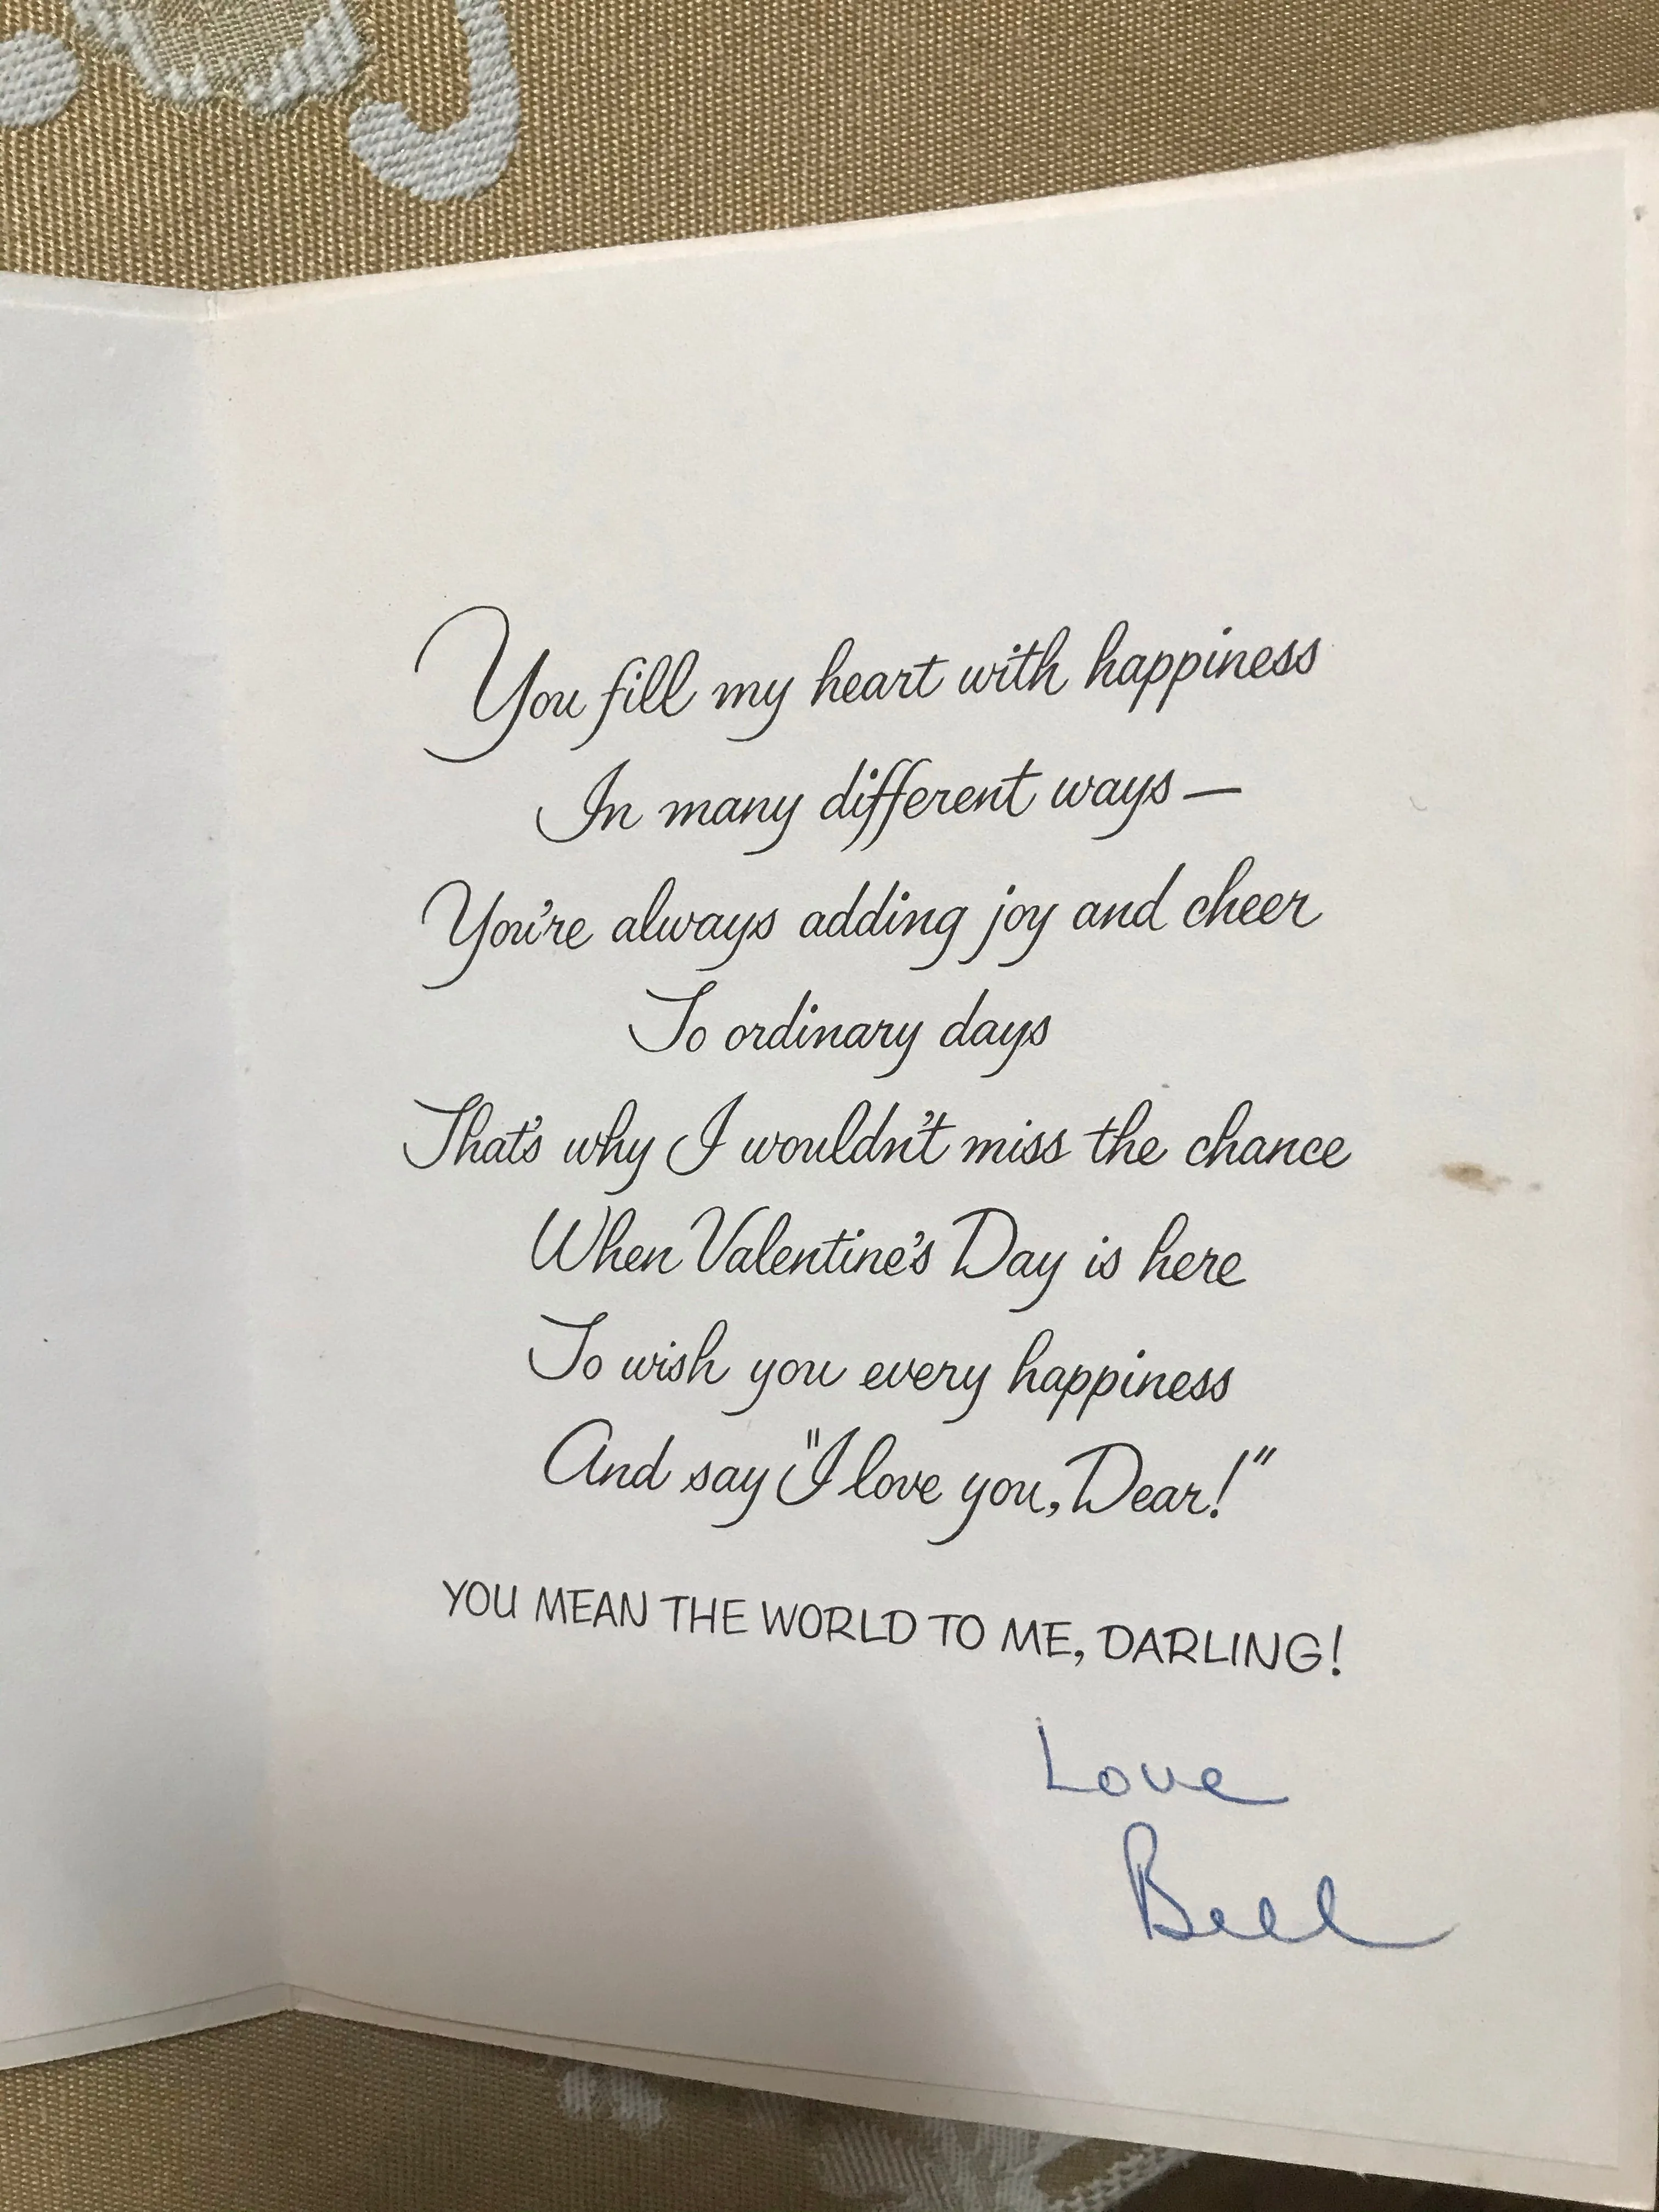 You fill my heart with happiness
In many different ways —
You're always adding joy and cheer
To ordinary days
That's why I wouldn't miss the chance
When Valentine's Day is here
To wish you every happiness
And say "I love you, Dear!"
YOU MEAN THE WORLD TO ME, DARLING!
Love
Bill